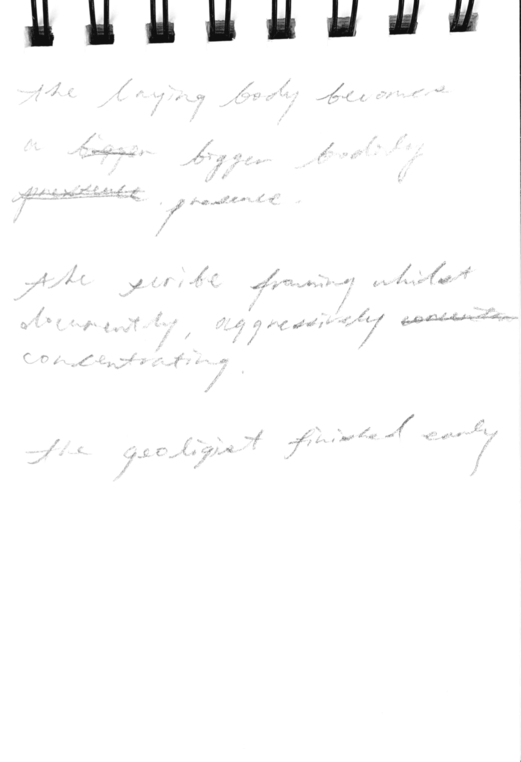 the laying body becomes
a bigger bigger bodily
pressence presence.
the scribe framing whilst
documently, aggressively
concentrating.
the geoligist finished early